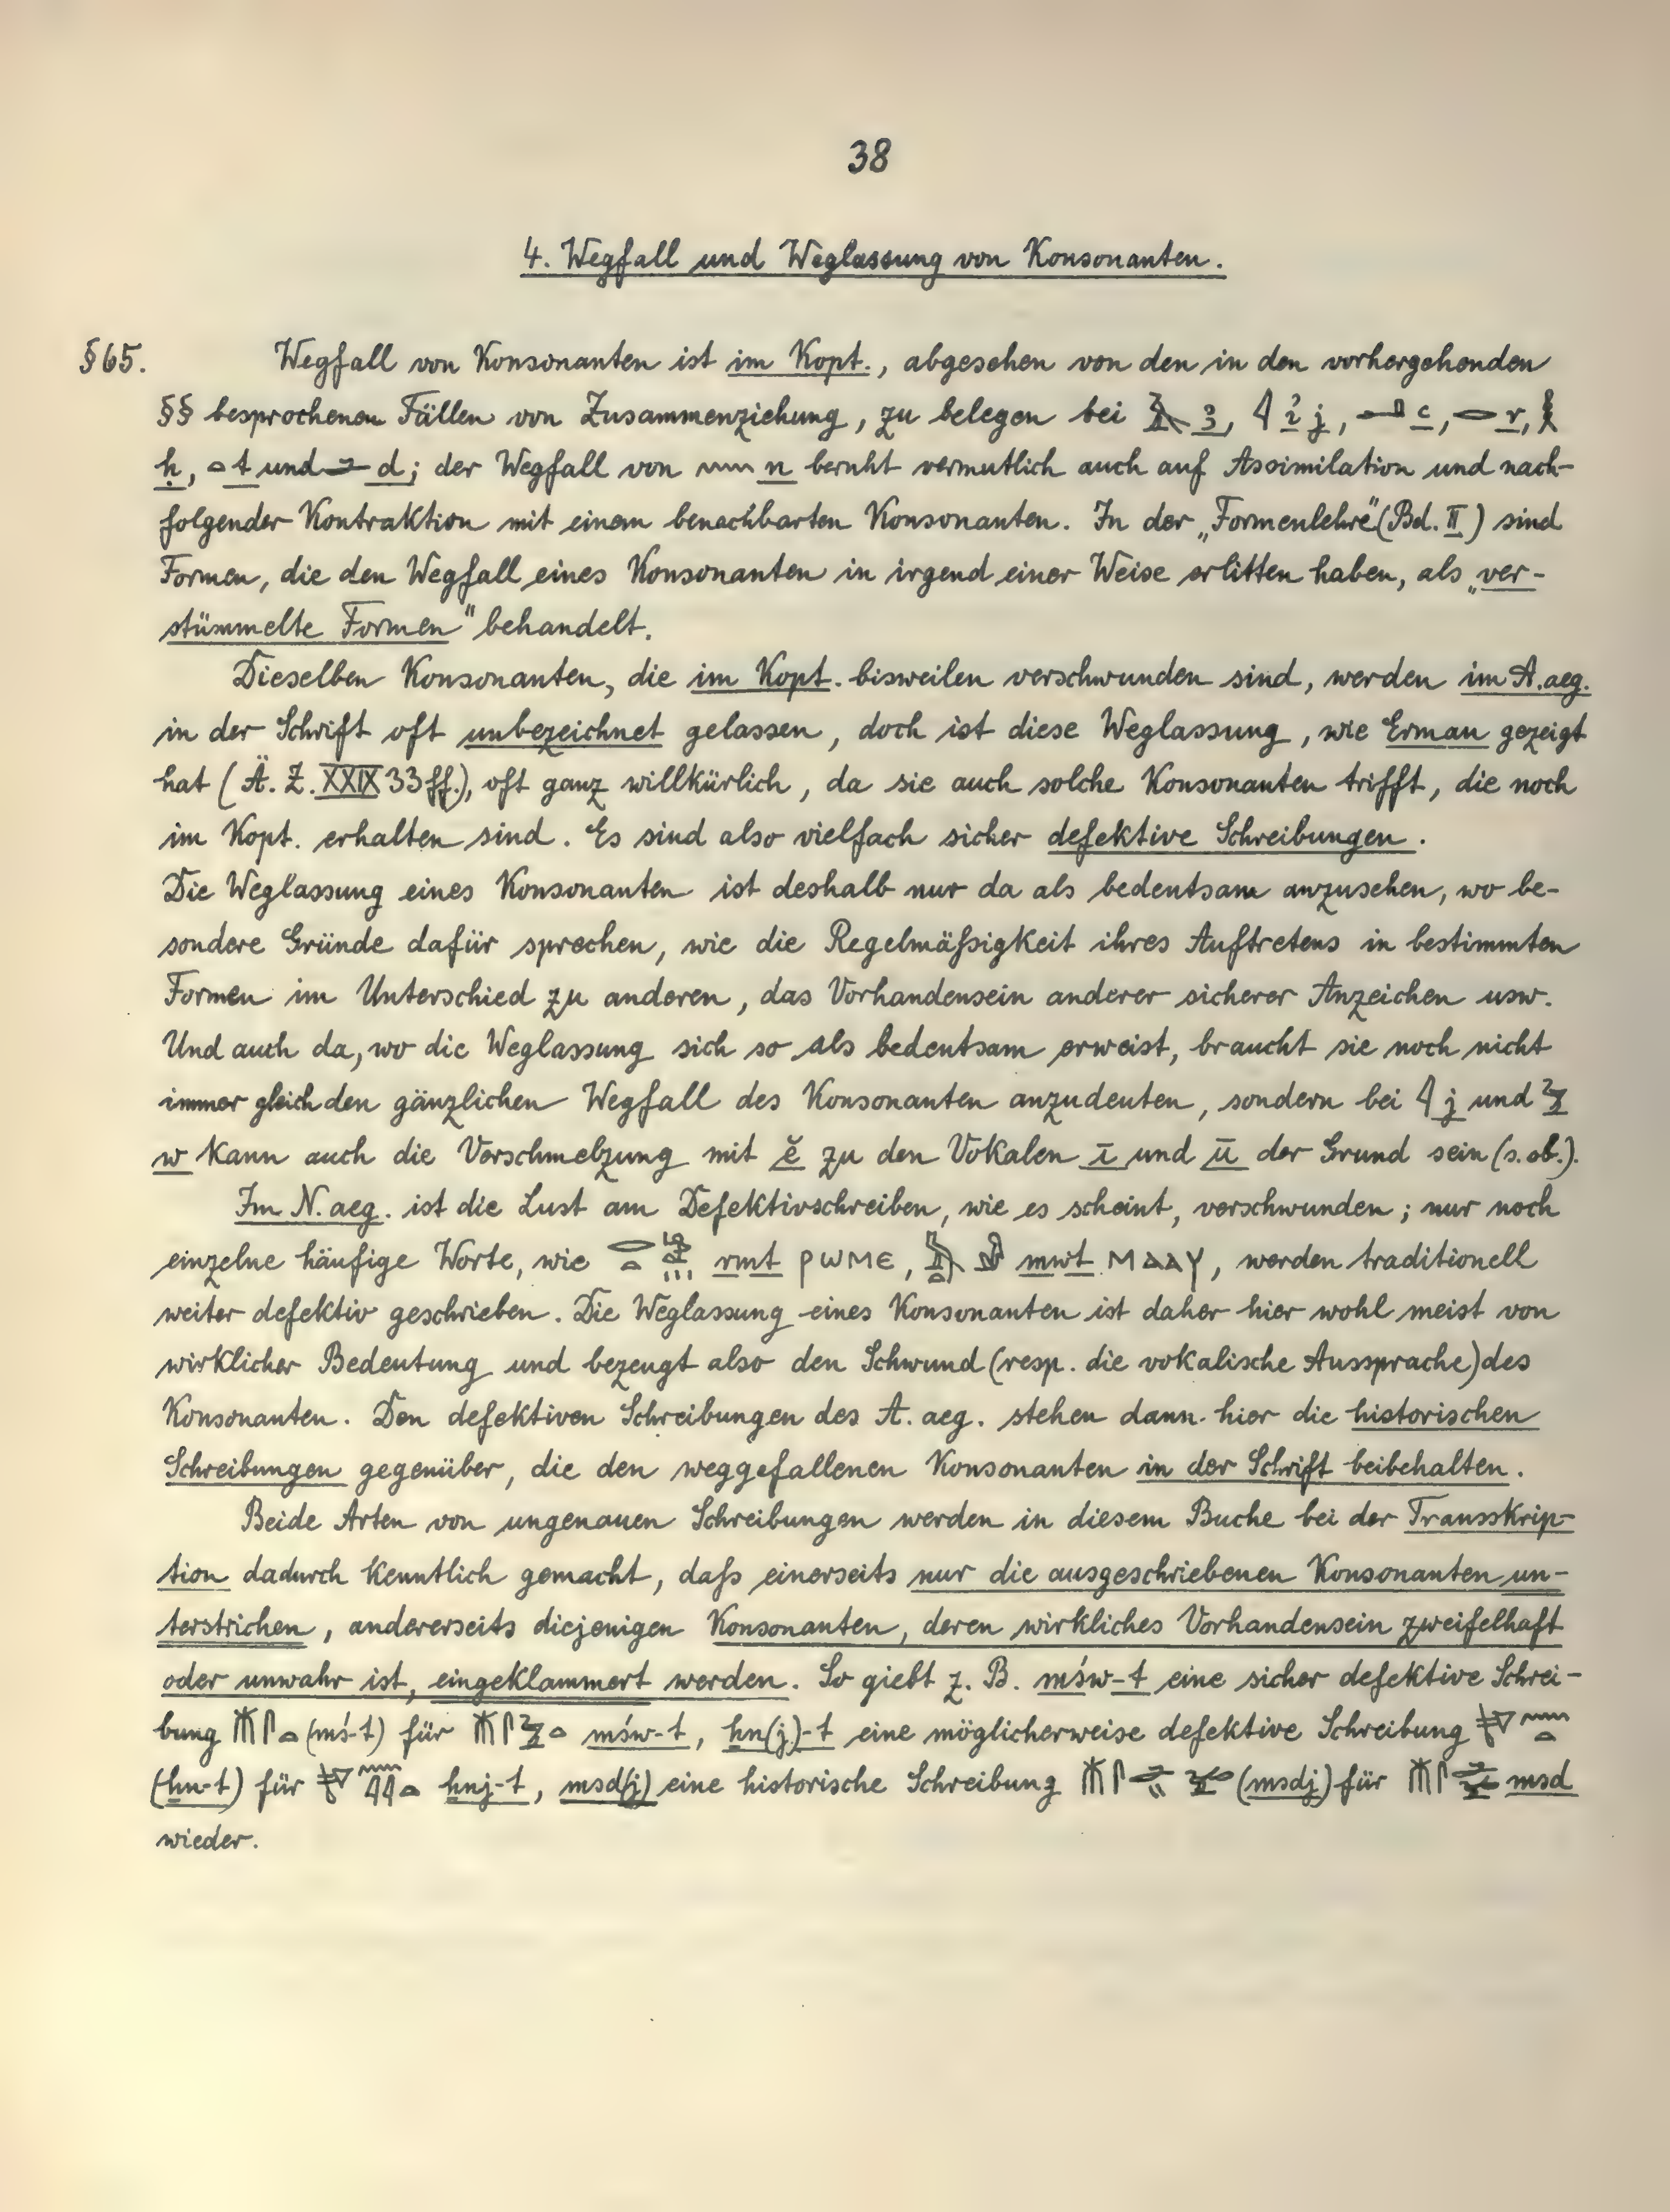 38
4. Wegfall und Weglassung von Konsonanten.
§ 65. Wegfall von Konsonanten ist im Kopt., abgesehen von den in den vorhergehenden
§§ besprochenen Fällen von Zusammenziehung, zu belegen bei 𓄿 ꜣ, 𓇋 ỉ j, 𓂝 ꜥ, 𓂋 r, 𓎛
ḥ, 𓏏 t und 𓂧 d; der Wegfall von 𓈖 n beruht vermutlich auch auf Assimilation und nach-
folgender Kontraktion mit einem benachbarten Konsonanten. In der „Formenlehre" (Bd. II) sind
Formen, die den Wegfall eines Konsonanten in irgend einer Weise erlitten haben, als „ver-
stümmelte Formen" behandelt.
Dieselben Konsonanten, die im Kopt. bisweilen verschwunden sind, werden im A. aeg.
in der Schrift oft unbezeichnet gelassen, doch ist diese Weglassung, wie Erman gezeigt
hat (Ä. Z. XXIX 33 ff.), oft ganz willkürlich, da sie auch solche Konsonanten trifft, die noch
im Kopt. erhalten sind. Es sind also vielfach sicher defektive Schreibungen.
Die Weglassung eines Konsonanten ist deshalb nur da als bedeutsam anzusehen, wo be-
sondere Gründe dafür sprechen, wie die Regelmäßigkeit ihres Auftretens in bestimmten
Formen im Unterschied zu anderen, das Vorhandensein anderer sicherer Anzeichen usw.
Und auch da, wo die Weglassung sich so als bedeutsam erweist, braucht sie noch nicht
immer gleich den gänzlichen Wegfall des Konsonanten anzudeuten, sondern bei 𓇋 j und 𓅱
w kann auch die Verschmelzung mit ĕ zu den Vokalen ī und ū der Grund sein (s. ob.).
Im N. aeg. ist die Lust am Defektivschreiben, wie es scheint, verschwunden; nur noch
einzelne häufige Worte, wie rmt ⲣⲱⲙⲉ, mwt ⲙⲁⲁⲩ, werden traditionell
weiter defektiv geschrieben. Die Weglassung eines Konsonanten ist daher hier wohl meist von
wirklicher Bedeutung und bezeugt also den Schwund (resp. die vokalische Aussprache) des
Konsonanten. Den defektiven Schreibungen des A. aeg. stehen dann hier die historischen
Schreibungen gegenüber, die den weggefallenen Konsonanten in der Schrift beibehalten.
Beide Arten von ungenauen Schreibungen werden in diesem Buche bei der Transskrip-
tion dadurch kenntlich gemacht, daß einerseits nur die ausgeschriebenen Konsonanten un-
terstrichen, andererseits diejenigen Konsonanten, deren wirkliches Vorhandensein zweifelhaft
oder unwahr ist, eingeklammert werden. So giebt z. B. mśw-t eine sicher defektive Schrei-
bung 𓄟𓋴𓏏 (mś-t) für 𓄟𓋴𓅱𓏏 mśw-t, ḫn(j)-t eine möglicherweise defektive Schreibung
(ḫn-t) für ḫnj-t, msd(j) eine historische Schreibung (msdj) für msd
wieder.